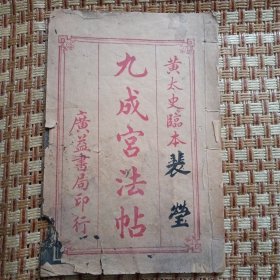 黄太史臨本
九成宮法帖
廣益書局印行
裴瑩